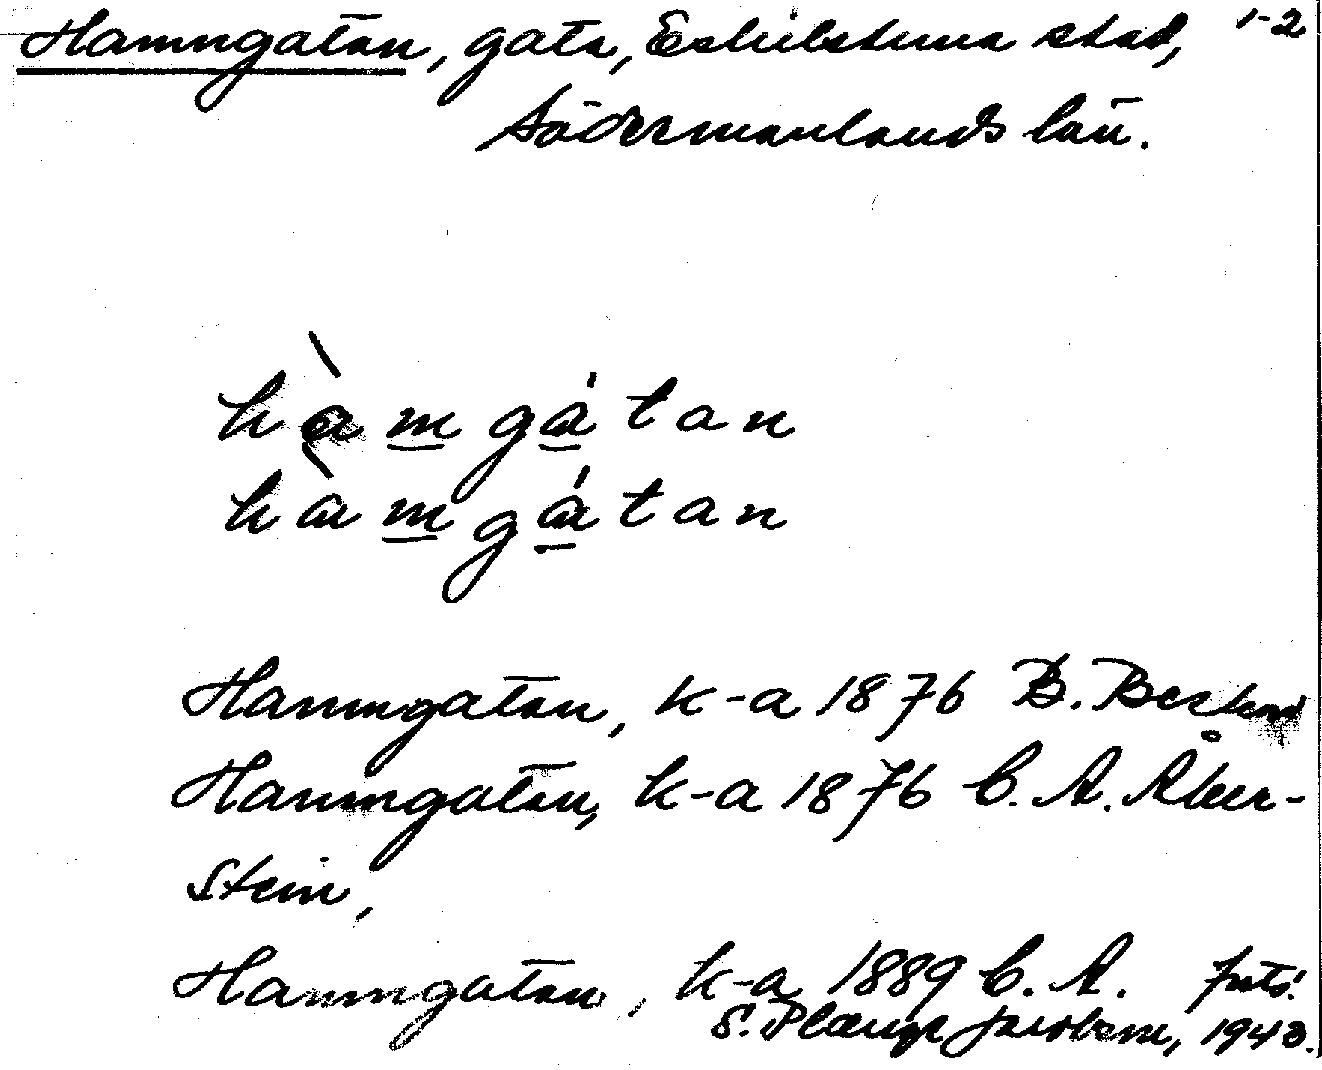 Hamngatan, gata, Eskilstuna stad, 1-2
Södermanlands län.
hàmgátan
hàmgátan
Hamngatan, k-a 1876 B.
Hamngatan, k-a 1876 C. A. Åker-
stein,
Hamngatan, k-a 1889 C. A.
S. Plænge Jacobson, 1943.